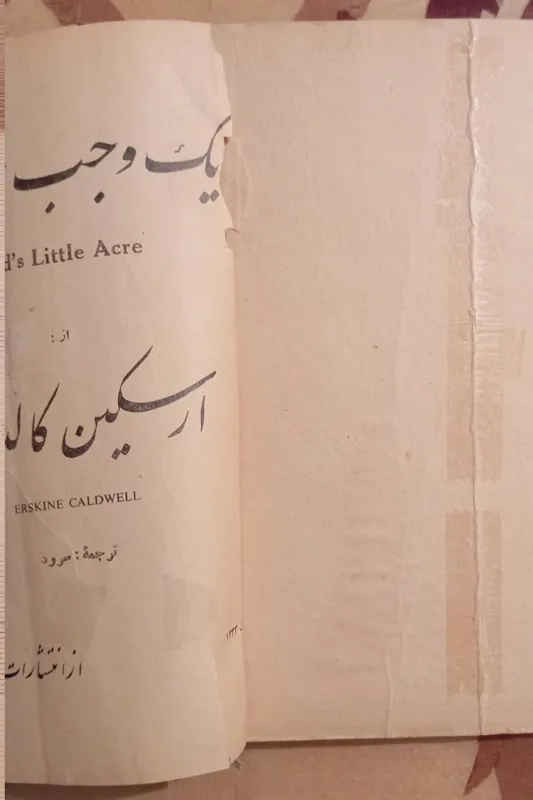 یک وجب
d's Little Acre
از :
ارسکین کالد
ERSKINE CALDWELL
ترجمهٔ : سرود
۱۳۳۳
از انتشارات